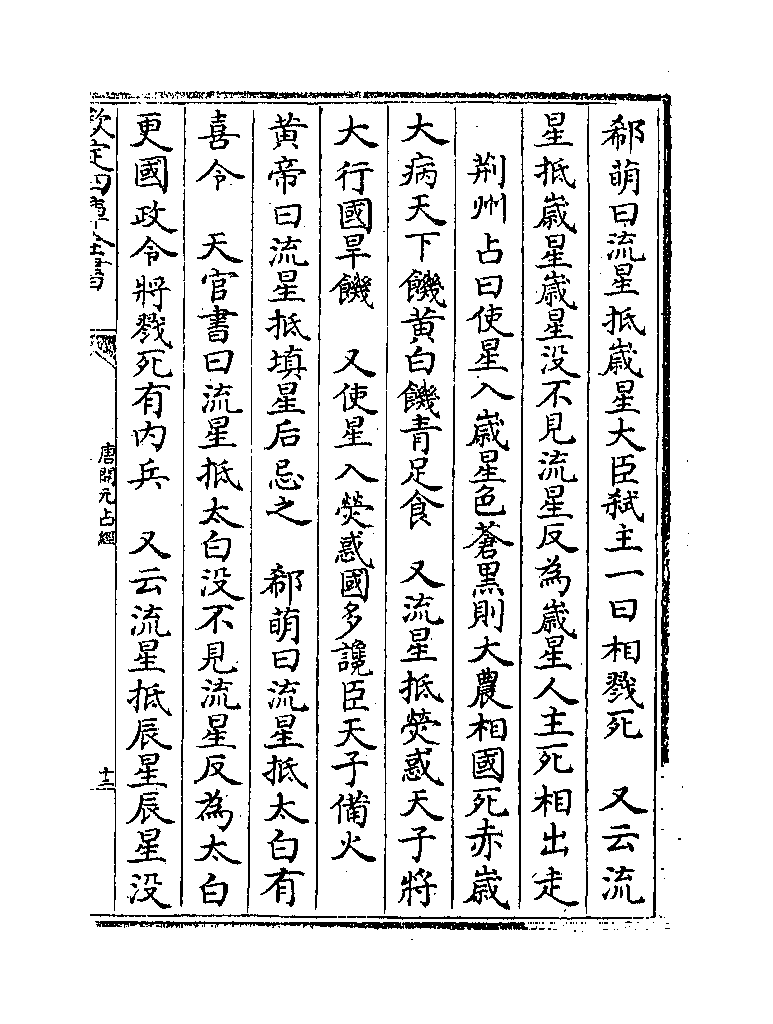 郗萌曰流星抵嵗星大臣弑主一曰相戮死　又云流
星抵嵗星嵗星没不見流星反為嵗星人主死相出走
荆州占曰使星入嵗星色蒼黑則大農相國死赤嵗
大病天下饑黄白饑青足食　又流星抵熒惑天子將
大行國旱饑　又使星入熒惑國多讒臣天子備火
黄帝曰流星抵填星后忌之　郗萌曰流星抵太白有
喜令　天官書曰流星抵太白没不見流星反為太白
更國政令將戮死有内兵　又云流星抵辰星辰星没
欽定四庫全書
唐開元占經
十三